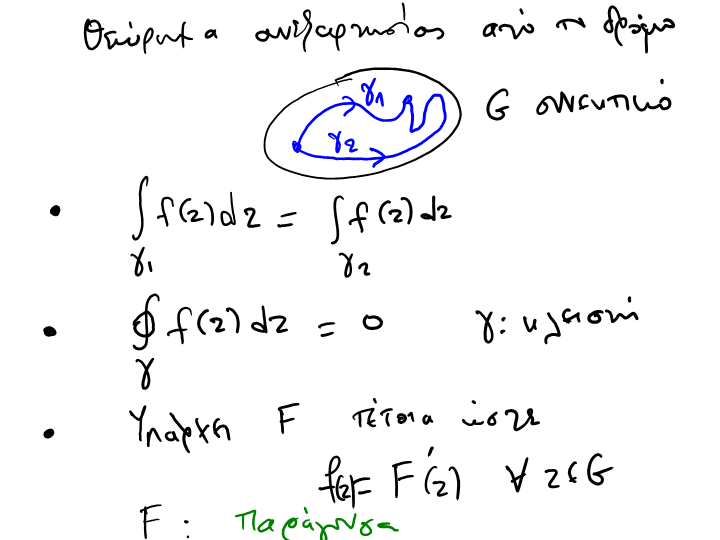 Θεώρημα ανεξαρτησίας από το δρόμο
γ₁ γ₂ G συνεκτικό
• ∫_γ₁ f(z)dz = ∫_γ₂ f(z)dz
• ∮_γ f(z)dz = 0 γ: κλειστή
• Υπάρχει F τέτοια ώστε
f(z) = F'(z) ∀ z ∈ G
F: παράγουσα